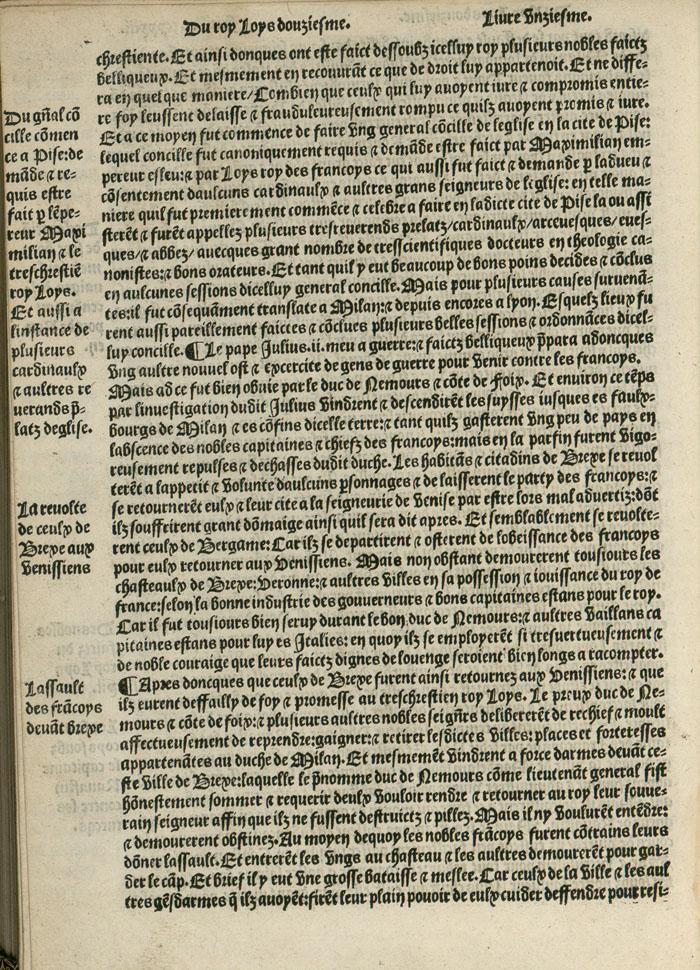 Du roy Loys douziesme.
Liure Vnziesme.
chrestiente. Et ainsi donques ont este faict dessoubz icelluy roy plusieurs nobles faictz
belliqueux. Et mesmement en recouurãt ce que de droit luy appartenoit. Et ne diffe-
ra en quelque maniere/ Combien que ceulx qui luy auoyent iure ⁊ compromis entie-
re foy leussent delaisse ⁊ frauduleureusement rompu ce quilz auoyent ꝓmis ⁊ iure.
Et a ce moyen fut commence de faire vng general cõcille de leglise en la cite de Pise:
lequel concille fut canoniquement requis ⁊ demãde estre faict par Maximilian em-
pereur esleu: ⁊ par Loys roy des francoys ce qui aussi fut faict ⁊ demande ꝑ ladueu ⁊
cõsentement daulcuns cardinaulx ⁊ aultres grans seigneurs de leglise: en telle ma-
niere quil fut premierement commẽce ⁊ celebre a faire en ladicte cite de Pise la ou assi
sterẽt ⁊ furẽt appellez plusieurs tresreuerends prelatz/cardinaulx/arceuesques/eues-
ques/⁊ abbez/ auecques grant nombre de tresscientifiques docteurs en theologie ca-
nonistes:⁊ bons orateurs. Et tant quil y eut beaucoup de bons poins decides ⁊ cõclus
en aulcunes sessions dicelluy general concille. Mais pour plusieurs causes suruenã-
tes: il fut cõsequãment translate a Milan:⁊ depuis encores a lyon. Esquelz lieux fu
rent aussi pareillement faictes ⁊ cõclues plusieurs belles sessions ⁊ ordonnãces dicel-
luy concille. ¶ Le pape Julius.ii. meu a guerre:⁊ faictz belliqueux ꝓpara adoncques
vng aultre nouuel ost ⁊ excercite de gens de guerre pour venir contre les francoys.
Mais ad ce fut bien obuie par le duc de Nemours ⁊ cõte de Foix. Et enuiron ce tẽps
par linuestigation dudit Julius vindrent ⁊ descendirẽt les suysses iusques es faulx-
bourgs de Milan ⁊ es cõfins dicelle terre:⁊ tant quilz gasterent vng peu de pays en
labscence des nobles capitaines ⁊ chiefz des francoys: mais en la parfin furent vigo-
reusement repulses ⁊ dechasses dudit duche. Les habitãs ⁊ citadins de Brexe se reuol
terẽt a lappetit ⁊ volunte daulcuns ꝑsonnages ⁊ de laisserent le party des francoys:⁊
se retournerẽt eulx ⁊ leur cite a la seigneurie de Venise par estre lors mal aduertiz: dõt
ilz souffrirent grant dõmaige ainsi quil sera dit apres. Et semblablement se reuolte-
rent ceulx de Bergame: Car ilz se departirent ⁊ osterent de lobeissance des francoys
pour eulx retourner aux Venissiens. Mais non obstant demourerent tousiours les
chasteaulx de Brexe: Veronne:⁊ aultres villes en sa possession ⁊ iouissance du roy de
france: selon la bonne industrie des gouuerneurs ⁊ bons capitaines estans pour le roy.
Car il fut tousiours bien seruy durant le bon duc de Nemours:⁊ aultres vaillans ca
pitaines estans pour luy es Italies: en quoy ilz se employerẽt si tresuertueusement ⁊
de noble couraige que leurs faictz dignes de louenge seroient bien longs a racompter.
¶ Apres doncques que ceulx de Brexe furent ainsi retournez aux Venissiens:⁊ que
ilz eurent deffailly de foy ⁊ promesse au treschrestien roy Loys. Le preux duc de Ne-
mours ⁊ cõte de foix:⁊ plusieurs aultres nobles seigñrs delibererẽt de rechief ⁊ moult
affectueusement de reprendre: gaigner:⁊ retirer lesdictes villes: places et forteresses
appartenãtes au duche de Milan. Et mesmemẽt vindrent a force darmes deuãt ce-
ste ville de Brexe: laquelle le p̃nomme duc de Nemours cõme lieutenãt general fist
hõnestement sommer ⁊ requerir deulx vouloir rendre ⁊ retourner au roy leur souue-
rain seigneur affin que ilz ne fussent destruictz ⁊ pillez. Mais il ny voulurẽt entẽdre:
⁊ demourerent obstinez. Au moyen dequoy les nobles frãcoys furent cõtrains leurs
dõner lassault. Et entrerẽt les vngs au chasteau ⁊ les aultres demourerẽt pour gar-
der le cãp. Et brief il y eut vne grosse bataisse ⁊ meslee. Car ceulx de la ville ⁊ les aul
tres gẽsdarmes q̃ ilz auoyẽt: firẽt leur plain pouoir de eulx cuider deffendre pour resi-
Du gñal cõ
cille cõmen
ce a Pise: de
mãde ⁊ re-
quis estre
fait ꝑ lẽpe-
reur Maxi
milian ⁊ le
treschrestiẽ
roy Loys.
Et aussi a
linstance de
plusieurs
cardinaulx
⁊ aultres re
uerands p̃-
latz deglise.
La reuolte
de ceulx de
Brexe aux
Venissiens
Lassault
des frãcoys
deuãt brexe